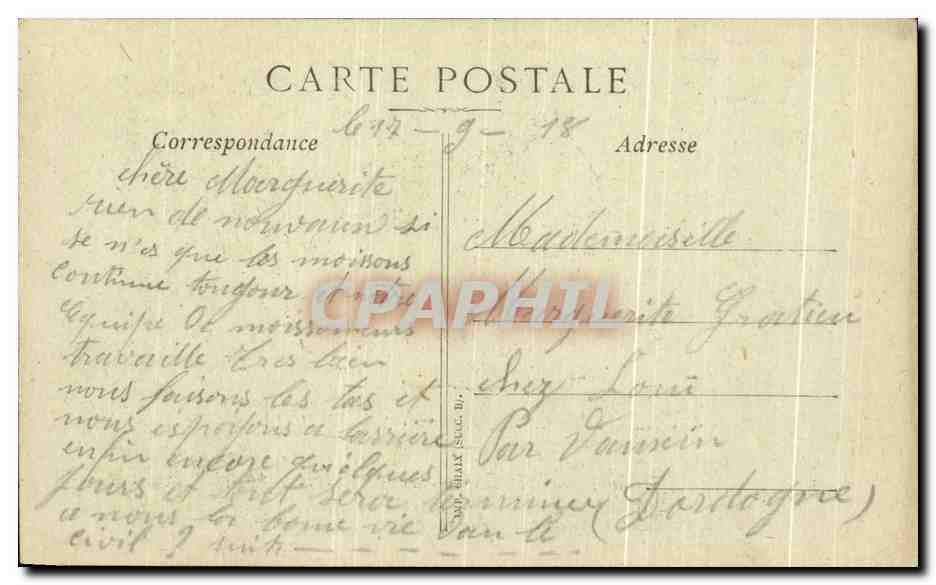 CARTE POSTALE
le 17 - 9 - 18
Correspondance
chère Marguerite
rien de nouvaux si
se n'es que les moissons
continue toujour et notre
équipe de moissoneurs
travaille très bien
nous faisons les tas et
nous espoyons a larrière
enfin encore quelques
jours et tout sera terminer
a nous la bone vie dan le
civil ? suite - - - - - -
Adresse
Mademoiselle
Marguerite Gratien
chez
Par
(Dordogne)
IMP. CHAIX (SUCC. B).
CPAPHIL